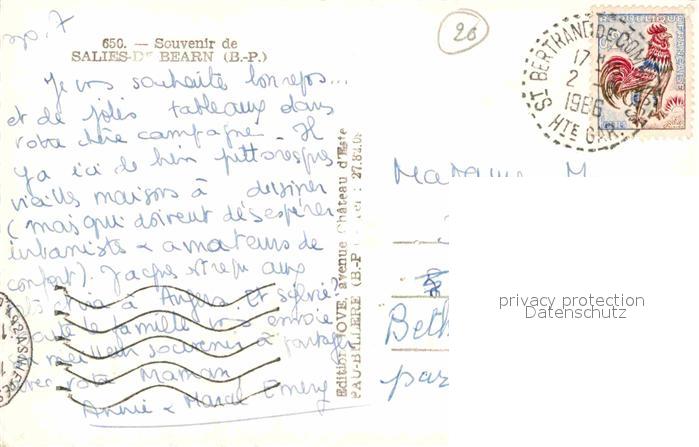 sp. 7
26
650. — Souvenir de
SALIES-DE BEARN (B.-P.)
Je vous souhaite bon repos...
et de jolis tableaux dans
votre chère campagne. Il
y a ici de bien pittoresques
vieilles maisons à dessiner
(mais qui doivent désespérer
urbanistes & amateurs de
confort). Jacques
à Angers. Et Sylvie?
Toute la famille vous envoie
meilleur souvenir à partager
avec votre Maman
Annie & Marcel Emery
Edition JOVE, avenue Château d'Este
PAU-BILLERE (B.-P
ST BERTRAND DE COM
17 H
2
1966
HTE GAR.
REPUBLIQUE FRANÇAISE
Madame M
Beth
par
privacy protection
Datenschutz